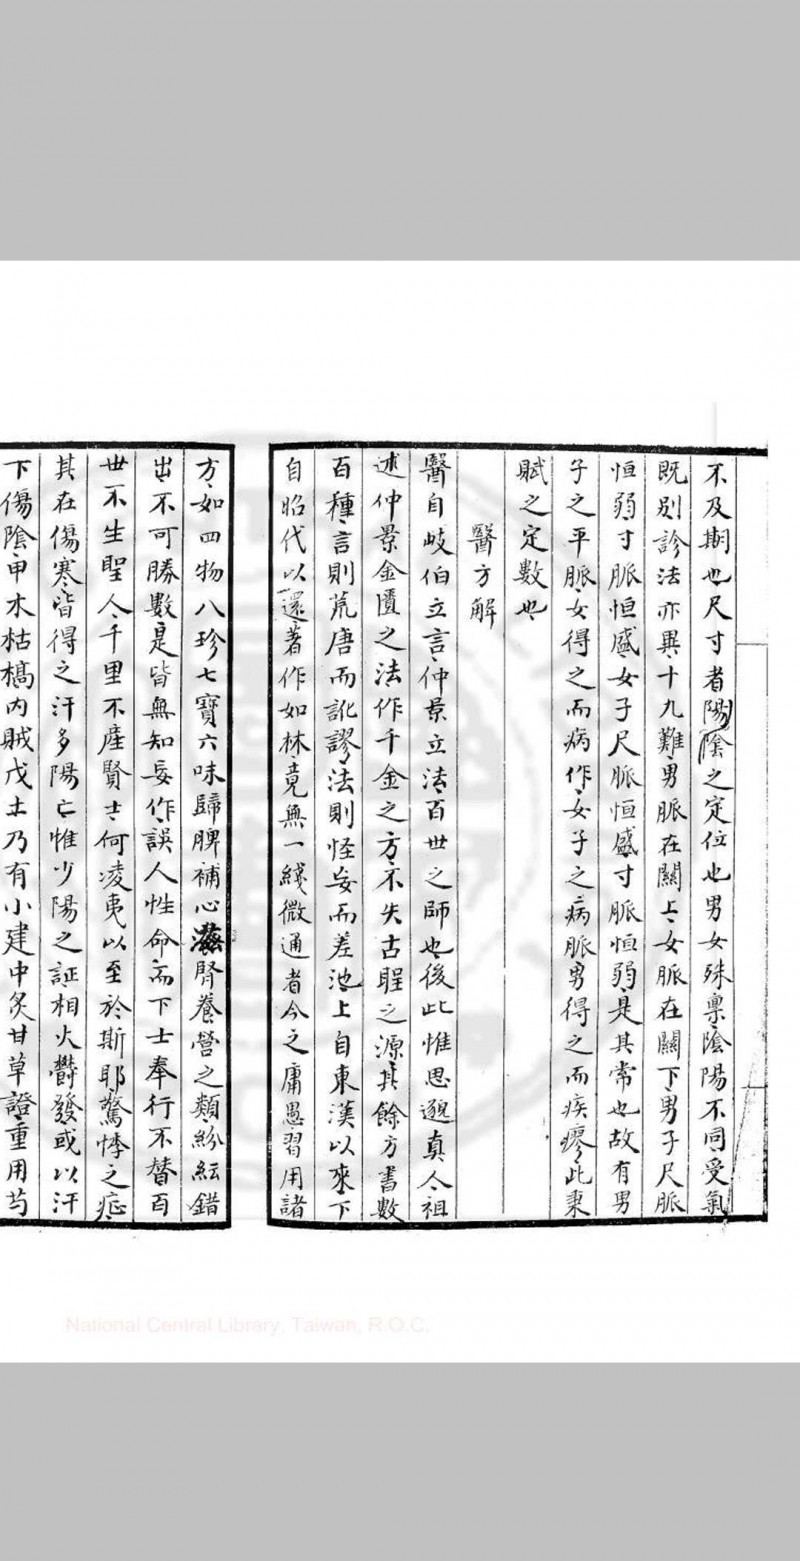 不及期也尺寸者陽陰之定位也男女殊禀陰陽不同受氣
既別診法亦異十九難男脈在關上女脈在關下男子尺脈
恒弱寸脈恒盛女子尺脈恒盛寸脈恒弱是其常也故有男
子之平脈女得之而病作女子之病脈男得之而疾瘳此秉
賦之定數也
醫方解
醫自岐伯立言仲景立法百世之師也後此惟思邈真人祖
述仲景金匱之法作千金之方不失古聖之源其餘方書數
百種言則荒唐而訛謬法則怪妄而差池上自東漢以來下
自昭代以還著作如林竟無一綫微通者今之庸愚習用諸
方如四物八珍七寶六味歸脾補心滋腎養營之類紛紜錯
出不可勝數是皆無知妄作誤人性命而下士奉行不替百
世不生聖人千里不產賢士何凌夷以至於斯耶驚悸之症
其在傷寒皆得之汗多陽亡惟少陽之証相火鬱發或以汗
下傷陰甲木枯槁內賊戊土乃有小建中炙甘草證重用芍
National Central Library, Taiwan, R.O.C.